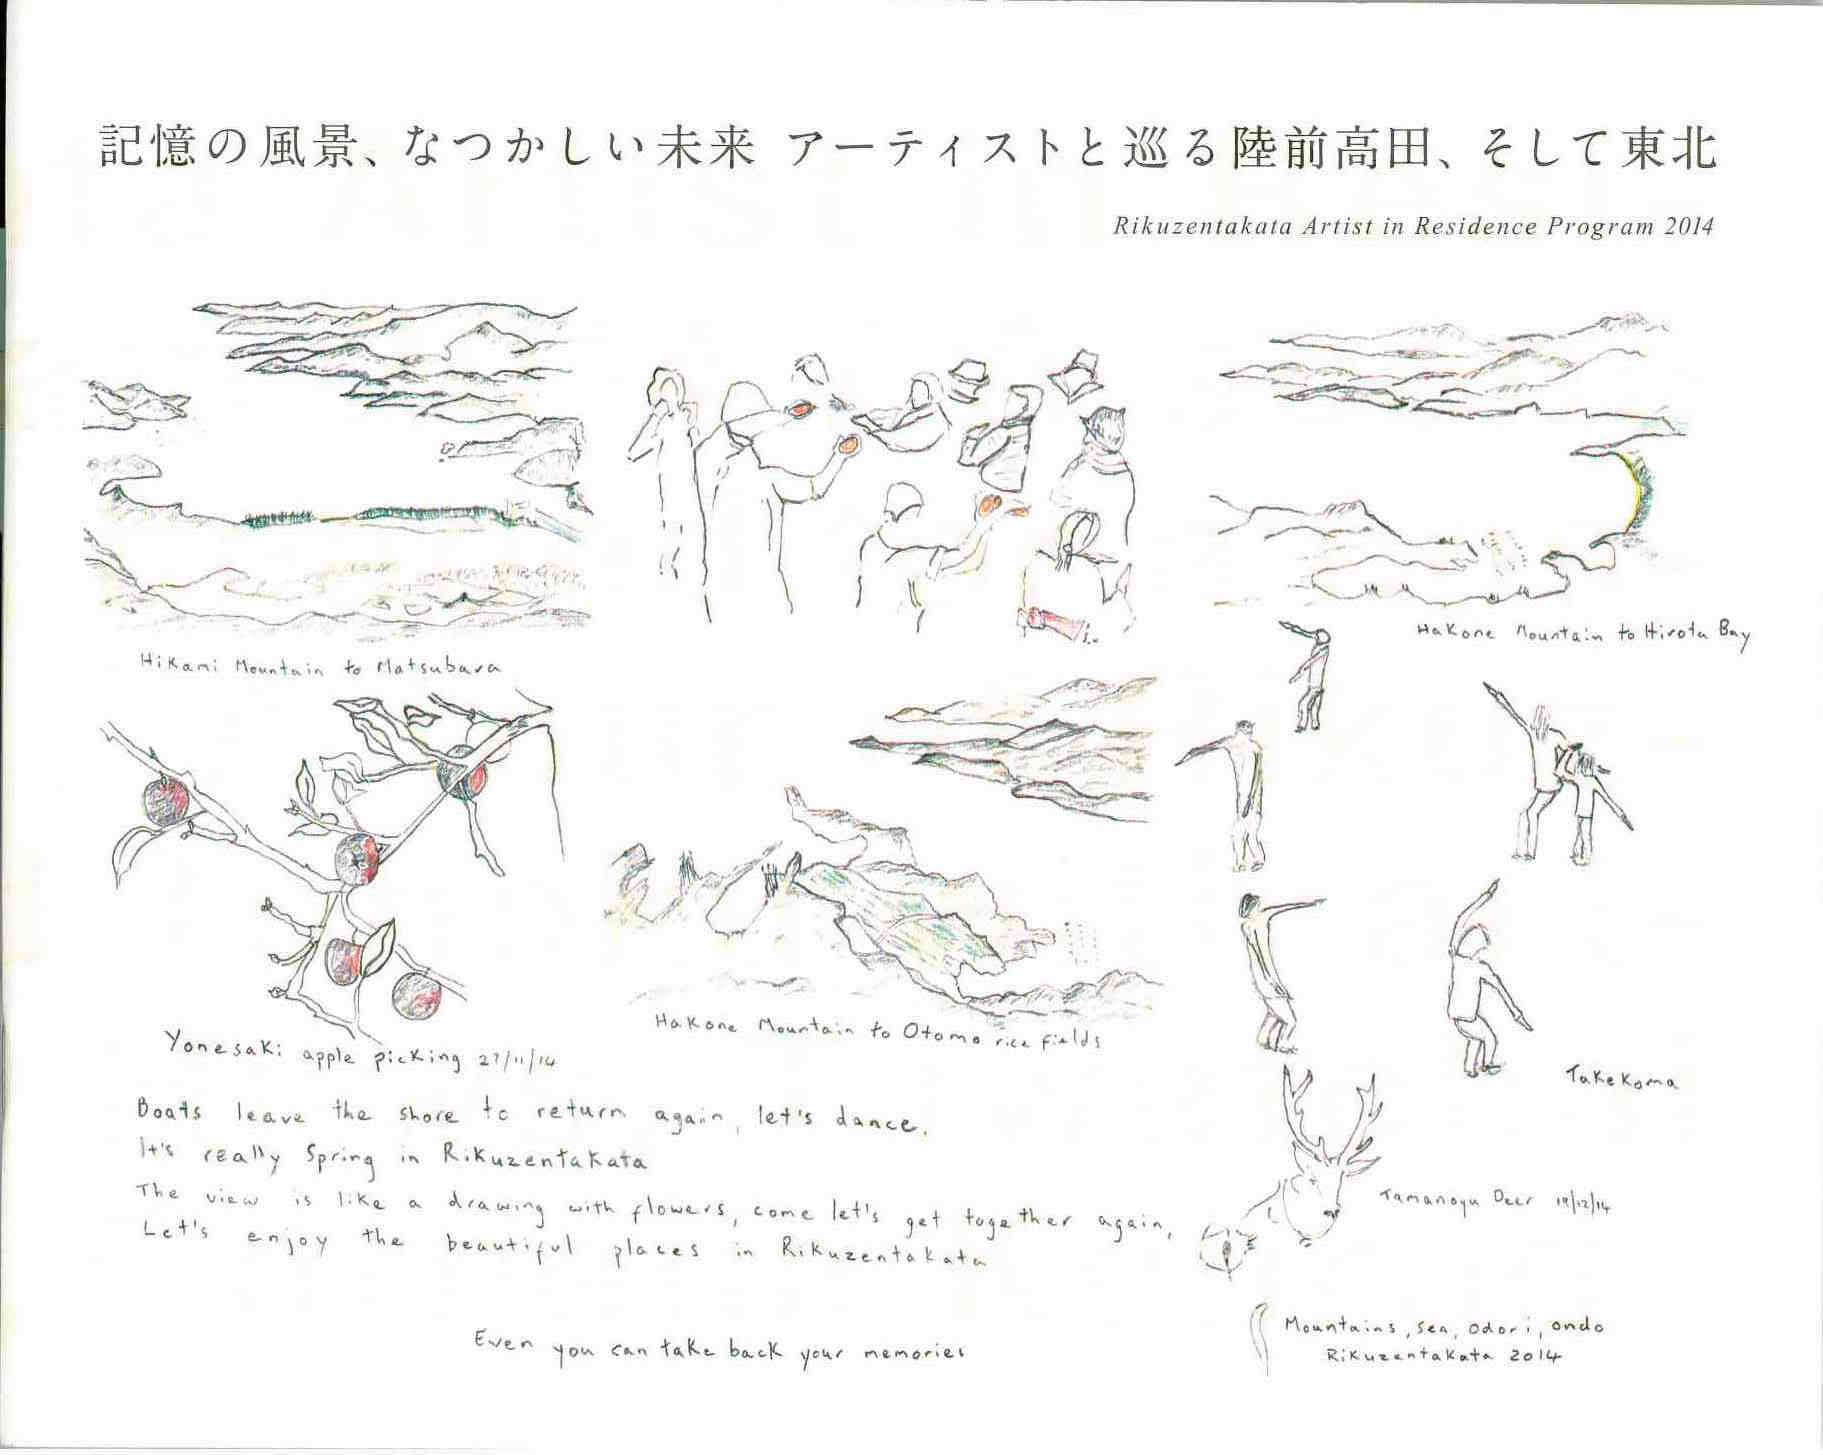 記憶の風景、なつかしい未来 アーティストと巡る陸前高田、そして東北
Rikuzentakata Artist in Residence Program 2014
Hikami Mountain to Matsubara
Hakone Mountain to Hirota Bay
Yonesaki apple picking 27/11/14
Hakone Mountain to Otomo rice fields
Takekoma
Boats leave the shore to return again, let's dance.
It's really Spring in Rikuzentakata
The view is like a drawing with flowers, come let's get together again,
Let's enjoy the beautiful places in Rikuzentakata
Tamanoyu Deer 19/12/14
Even you can take back your memories
Mountains, sea, odori, ondo
Rikuzentakata 2014